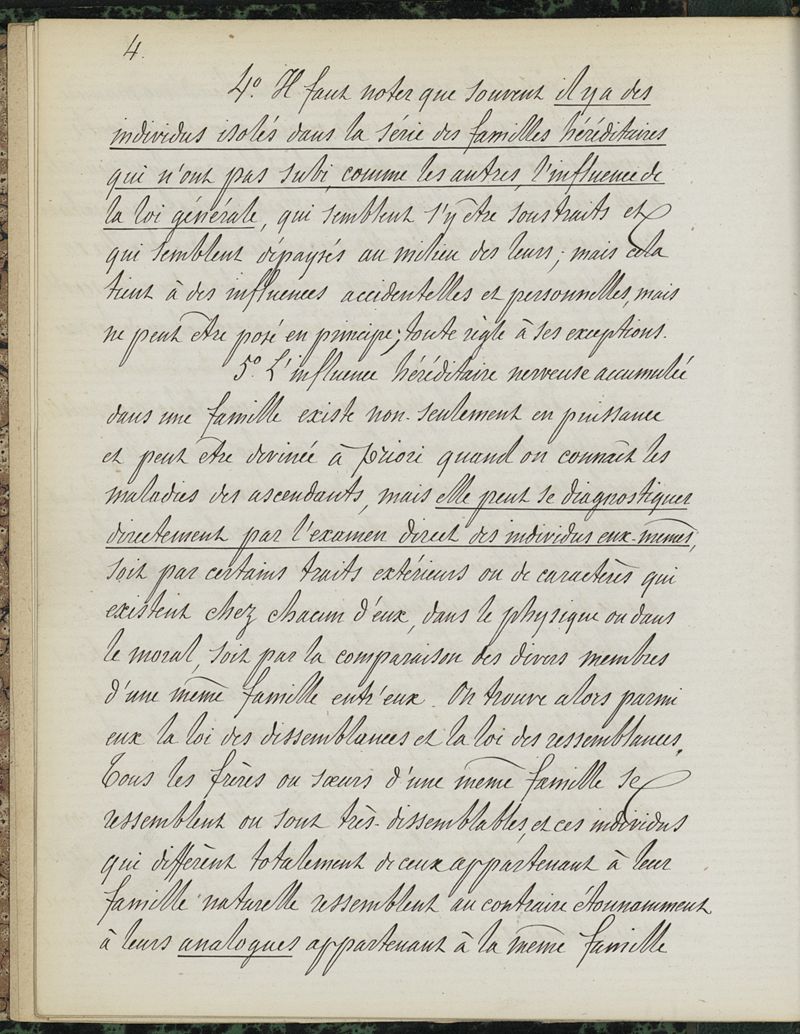 4.
4º. Il faut noter que souvent il y a des
individus isolés dans la série des familles héréditaires
qui n'ont pas subi, comme les autres, l'influence de
la loi générale, qui semblent s'y être soustraits et
qui semblent dépaysés au milieu des leurs; mais cela
tient à des influences accidentelles et personnelles, mais
ne peut être posé en principe; toute règle à ses exceptions.
5º. L'influence héréditaire nerveuse accumulée
dans une famille existe non-seulement en puissance
et peut être devinée à priori quand on connaît les
maladies des ascendants, mais elle peut se diagnostiquer
directement par l'examen direct des individus eux-mêmes,
soit par certains traits extérieurs ou de caractères qui
existent chez chacun d'eux, dans le physique ou dans
le moral, soit par la comparaison des divers membres
d'une même famille entr'eux. On trouve alors parmi
eux la loi des dissemblances et la loi des ressemblances.
Tous les frères ou sœurs d'une même famille se
ressemblent ou sont très-dissemblables, et ces individus
qui diffèrent totalement de ceux appartenant à leur
famille naturelle ressemblent au contraire étonnamment
à leurs analogues appartenant à la même famille